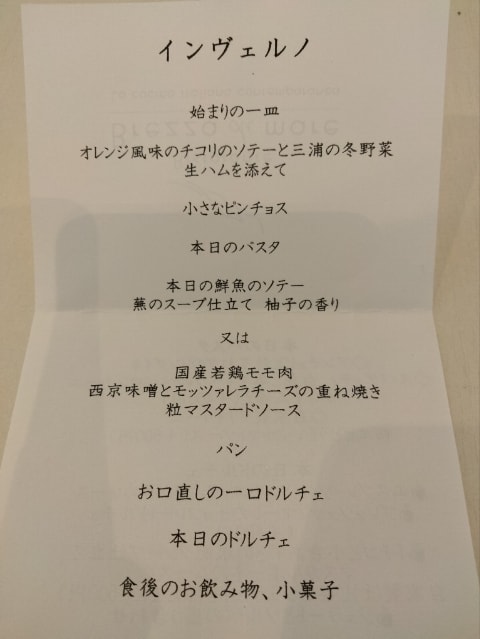 インヴェルノ
始まりの一皿
オレンジ風味のチコリのソテーと三浦の冬野菜
生ハムを添えて
小さなピンチョス
本日のパスタ
本日の鮮魚のソテー
蕪のスープ仕立て 柚子の香り
又は
国産若鶏モモ肉
西京味噌とモッツァレラチーズの重ね焼き
粒マスタードソース
パン
お口直しの一口ドルチェ
本日のドルチェ
食後のお飲み物、小菓子